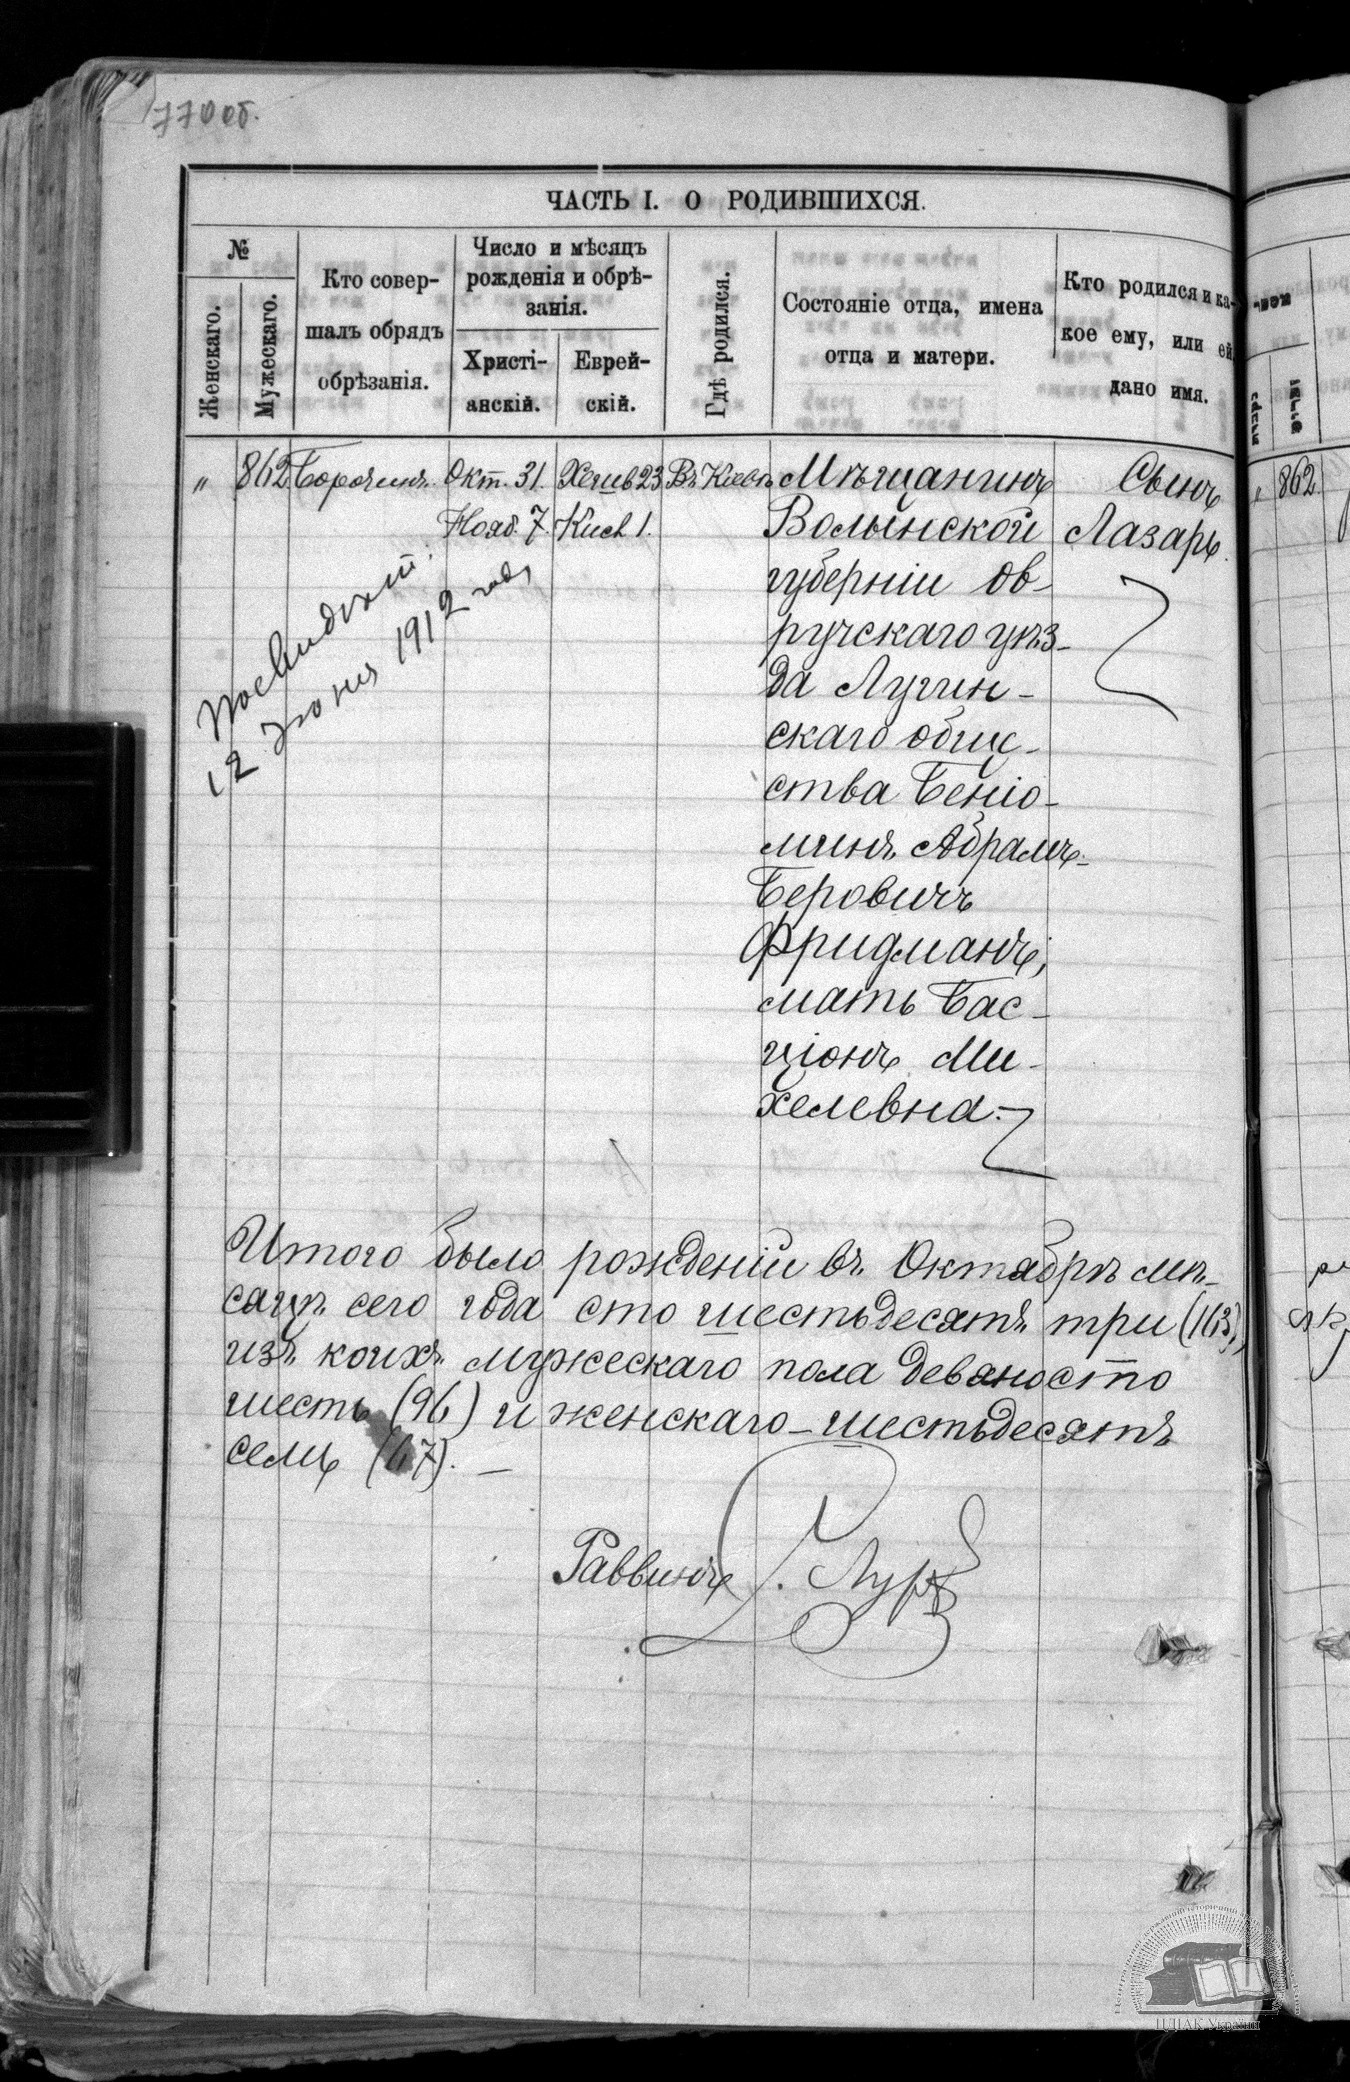 770 об.
ЧАСТЬ I. О РОДИВШИХСЯ.
№
Женскаго.
Мужескаго.
Кто совер-
шалъ обрядъ
обрѣзанія.
Число и мѣсяцъ
рожденія и обрѣ-
занія.
Христі-
анскій.
Еврей-
скій.
Гдѣ родился.
Состояніе отца, имена
отца и матери.
Кто родился и ка-
кое ему, или ей,
дано имя.
" 862 Окт. 31. Хешв 23 Въ Кіевѣ Мѣщанинъ Сынъ
Нояб. 7. Кисл 1. Волынской Лазарь.
губерніи Ов-
ручскаго уѣз-
да Лугин-
скаго обще-
ства Беніо-
минъ Абрамъ-
Беровичъ
Фридманъ,
мать Бас-
ціонъ Ми-
хелевна.
12 Іюня 1912 года
Итого было рожденій въ Октябрѣ мѣ-
сяцѣ сего года сто шестьдесятъ три (163),
изъ коихъ мужескаго пола девяносто
шесть (96) и женскаго - шестьдесятъ
семь (67). —
Раввинъ
" 862.
ЦДІАК України